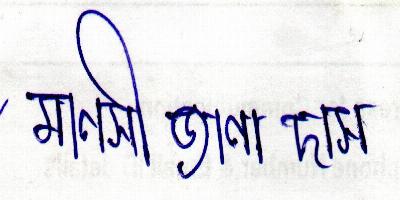 মানসী জানা দাস